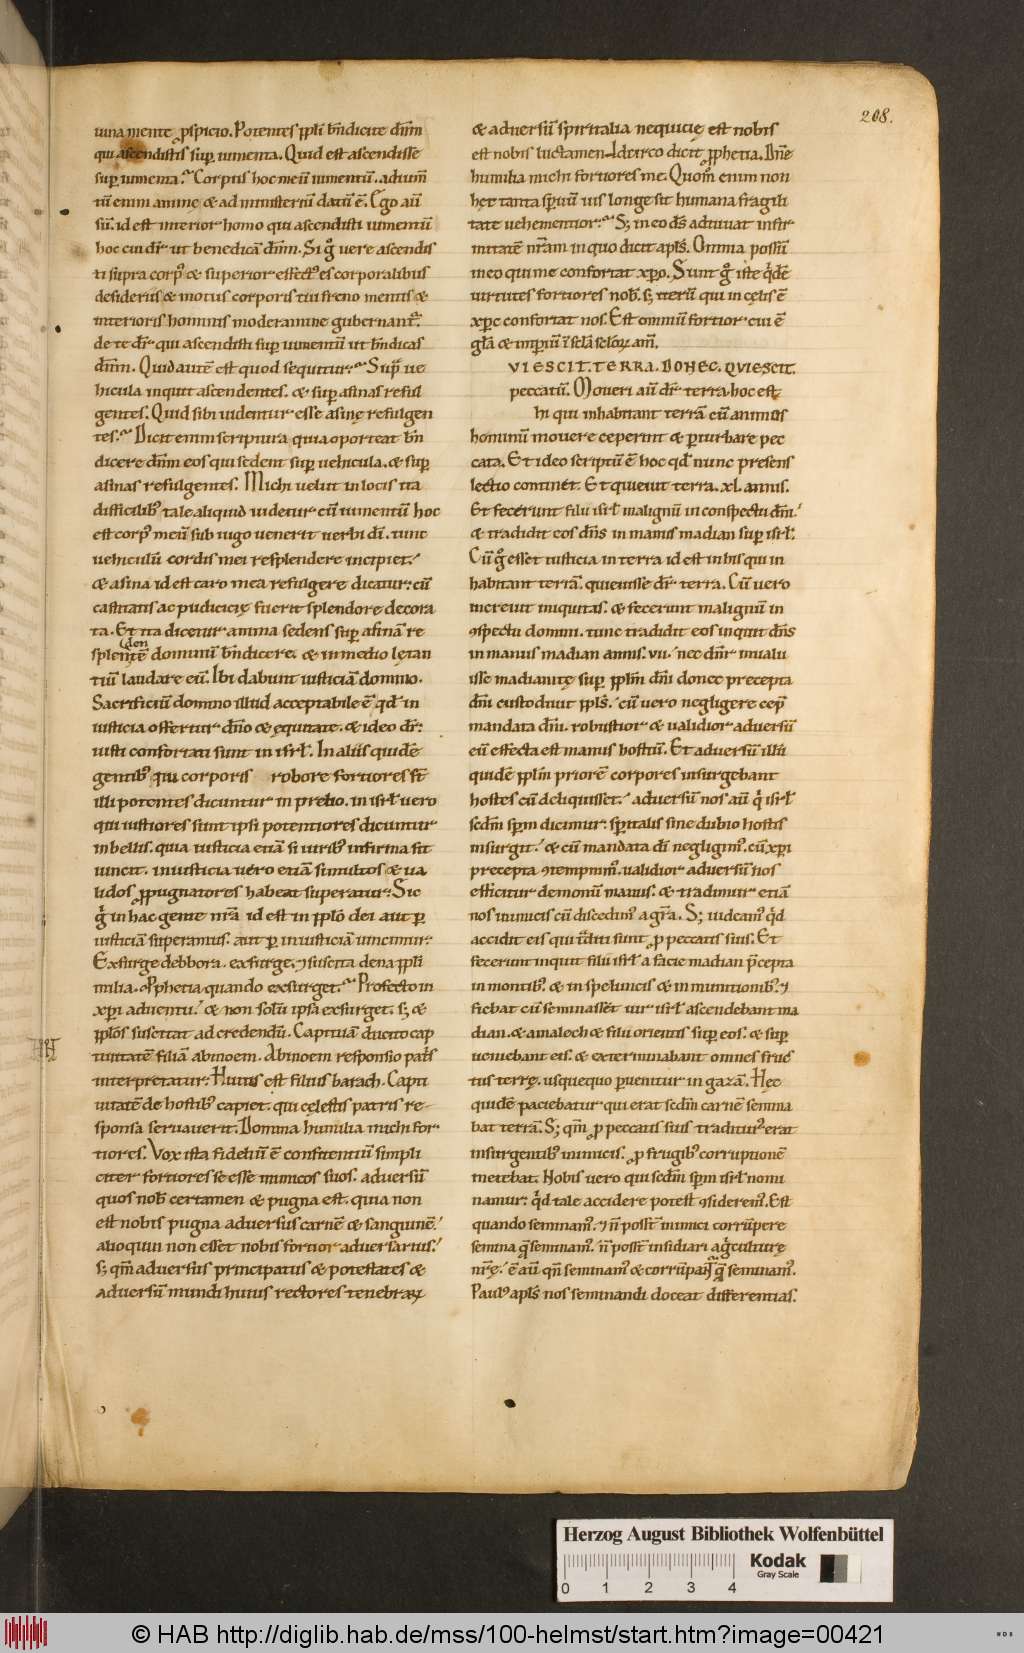 208.
uina mente ꝓspicio. Potentes ppli bñdicite dñm
qui ascendistis sup iumenta. Quid est ascendisse
sup iumenta? Corpus hoc meū iumentū. adium̄
tū enim anime & ad ministeriū datū ē. Ego aū
sū. id est interior homo qui ascendisti iumentū
hoc cui dr̄ ut benedicā dñm. Si g̊ uere ascendis
ti supra corp' & superior effect' es corporalibus
desideriis & motus corporis tui freno mentis &
interioris hominis moderamine gubernant̄.
de te dr̄ qui ascendisti sup iumentū ut bñdicas
dñm. Quid autē est quod sequitur? Sup ue
hicula inquit ascendentes. & sup asinas reful
gentes. Quid sibi uidentur esse asinę refulgen
tes? Dicit enim scriptura quia oporteat bñ
dicere dñm eos qui sedent sup uehicula. & sup
asinas refulgentes. Michi uelut in locis ita
difficilib' tale aliquid uidetur cū iumentū hoc
est corp' meū sub iugo uenerit uerbi dī. tunc
uehiculū cordis mei resplendere incipiet.
& asina id est caro mea refulgere dicatur: cū
castitatis ac pudicicię fuerit splendore decora
ta. Et ita dicetur anima sedens sup asinā re
den
splentē dominū bñdicere. & in medio lętan
tiū laudare eū. Ibi dabunt iusticiā domino.
Sacrificiū domino illud acceptabile ē qd̄ in
iusticia offertur dño & ęquitate. & ideo dr̄:
iusti confortati sunt in isrł. In aliis quidē
gentib' qui corporis robore fortiores st̄
illi potentes dicuntur in prelio. in isrł uero
qui iustiores sunt ipsi potentiores dicuntur
in bellis. quia iusticia etiā si uirib' infirma sit
uincit. iniusticia uero etiā si multos & ua
lidos ꝓpugnatores habeat superatur: Sic
g̊ in hac gente nrā id est in pplo dei aut ꝑ
iusticiā superamus. aut ꝑ iniusticiā uincimur.
Exsurge debbora. exsurge. & suscita dena ppli
milia. Pphetia quando exsurget? Profecto in
xp̄i aduentu. & non solū ipsa exsurget. s; &
pplos suscitat ad credendū. Captiuā ducito cap
tiuitatē filiā abinoem. Abinoem responsio pat's
interpretatur. Huius est filius barach. Capti
uitatē de hostib' capiet. qui cęlestis patris re
sponsa seruauerit. Domina humilia michi for
tiores. Vox ista fidelium ē confitentiū simpli
citer fortiores se esse inimicos suos. aduersū
quos nob' certamen & pugna est. quia non
est nobis pugna aduersus carnē & sanguinē.
alioquin non esset nobis fortior aduersarius.
s; qm̄ aduersus principatus & potestates &
aduersū mundi huius rectores tenebrarꝝ
& aduersū spiritalia nequicię est nobis
est nobis luctamen. Idcirco dicit pphetia. Dñe
humilia michi fortiores me. Quom̊ enim non
hec tanta spirituū uis longe sit humana fragili
tate uehementior? S; in eo d̄s adiuuat infir
mitatē nr̄am in quo dicit apłs. Omnia possū
in eo qui me confortat xp̄o. Sunt g̊ iste q̇dē
uirtutes fortiores nob'. s; iterū qui in cęlis ē
xp̄c confortat nos. Est omniū fortior. cui ē
gła & imperiū ī sc̄la sc̄lorꝝ am̄.
VIESCIT. TERRA. DONEC. QVIESCIT.
peccatū. Moueri aū dr̄ terra. hoc est
hi qui inhabitant terrā cū animus
hominū mouere ceperint & ꝑturbare pec
cata. Et ideo scriptū ē hoc qd̄ nunc presens
lectio continet. Et quieuit terra. xl. annis.
Et fecerunt filii isrł malignū in conspectu dñi.
& tradidit eos dñs in manus madian sup isrł.
Cū g̊ esset iusticia in terra id est in his qui in
habitant terrā. quieuisse dr̄ terra. Cū uero
increuit iniquitas. & fecerunt malignū in
ꝯspectu domini. tunc tradidit eos inquit dñs
in manus madian annis. vii. nec dñr inualu
isse madianitę sup pplm̄ dñi donec precepta
dñi custodiuit ppls. cū uero negligere cep
mandata dñi. robustior & ualidior aduersū
eū effecta est manus hostiū. Et aduersū illū
quidē pplm̄ priorē corpores insurgebant
hostes cū deliquisset. aduersū nos aū q̇ isrł
scdm̄ spm̄ dicimur: spiritalis sine dubio hostis
insurgit. & cū mandata dī negligim'. cū xp̄i
precepta ꝯtempnim'. ualidior aduersū nos
efficitur demonū manus. & tradimur etiā
nos inimicis cū discedim' a gr̄a. S; uideam' q̇d
accidit eis qui tditi sunt ꝓ peccatis suis. Et
fecerunt inquit filii isrł a facie madian p̄cepta
in montib'. & in speluncis & in munitionib'. &
fiebat cū seminasset uir isrł ascendebant ma
dian. & amalech & filii orientis sup eos. & sup
ueniebant eis. & exterminabant omnes fruc
tus terrę. usquequo ꝑuenitur in gazā. Hęc
quidē paciebatur qui erat scdm̄ carnē semina
bat terrā. S; qm̄ ꝓ peccatis suis traditur' erat
insurgentib' inimicis. ꝓ frugib' corruptionē
metebat. Nobis uero qui scdm̄ spm̄ isrł nomi
namur. q̇d tale accidere potest ꝯsiderem'. Est
quando seminam'. & n̄ poss̄t inimici corrūpere
semina quę seminam'. n̄ poss̄t insidiari agriculturę
nr̄ę. ē aū qn̄ seminam' & corrūpant̄ quę seminam'.
Paul' apłs nos seminandi doceat differentias.
Herzog August Bibliothek Wolfenbüttel
Kodak
Gray Scale
0 1 2 3 4
© HAB http://diglib.hab.de/mss/100-helmst/start.htm?image=00421